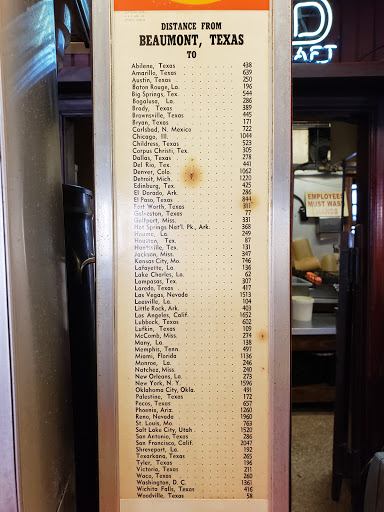 DISTANCE FROM
BEAUMONT, TEXAS
TO
Abilene, Texas 438
Amarillo, Texas 639
Austin, Texas 250
Baton Rouge, La. 196
Big Springs, Tex. 544
Bogalusa, La. 286
Brady, Texas 389
Brownsville, Texas 445
Bryan, Texas 171
Carlsbad, N. Mexico 722
Chicago, Ill. 1044
Childress, Texas 523
Corpus Christi, Tex. 305
Dallas, Texas 278
Del Rio, Tex. 441
Denver, Colo. 1062
Detroit, Mich. 1220
Edinburg, Tex. 425
El Dorado, Ark. 286
El Paso, Texas 844
Fort Worth, Texas 311
Galveston, Texas 77
Gulfport, Miss. 331
Hot Springs Nat'l. Pk., Ark. 368
Houma, La. 249
Houston, Tex. 87
Huntsville, Tex. 131
Jackson, Miss. 347
Kansas City, Mo. 746
Lafayette, La. 136
Lake Charles, La. 62
Lampasas, Tex. 307
Laredo, Texas 417
Las Vegas, Nevada 1513
Leesville, La. 104
Little Rock, Ark. 403
Los Angeles, Calif. 1652
Lubbock, Texas 602
Lufkin, Texas 109
McComb, Miss. 274
Many, La. 138
Memphis, Tenn. 497
Miami, Florida 1136
Monroe, La. 246
Natchez, Miss. 240
New Orleans, La. 273
New York, N. Y. 1596
Oklahoma City, Okla. 491
Palestine, Texas 172
Pecos, Texas 657
Phoenix, Ariz. 1260
Reno, Nevada 1960
St. Louis, Mo. 763
Salt Lake City, Utah 1520
San Antonio, Texas 286
San Francisco, Calif. 2047
Shreveport, La. 192
Texarkana, Texas 265
Tyler, Texas 196
Victoria, Texas 211
Waco, Texas 260
Washington, D. C. 1361
Wichita Falls, Texas 416
Woodville, Texas 58
D
AFT
EMPLOYEES
MUST WAS